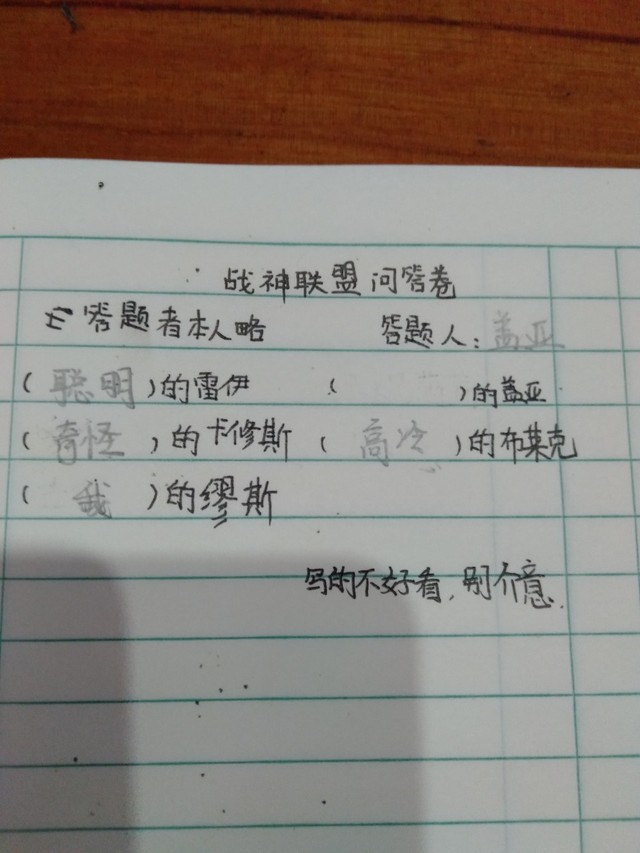 战神联盟问答卷
答题者本人略 答题人：盖亚
（聪明）的雷伊 （ ）的盖亚
（奇怪）的卡修斯 （高冷）的布莱克
（我）的缪斯
写的不好看，别介意.